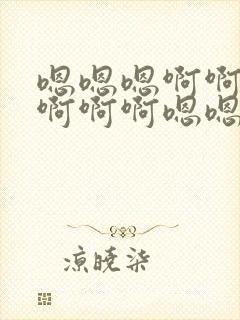 嗯嗯嗯啊啊
啊啊啊嗯嗯
凉晓柒